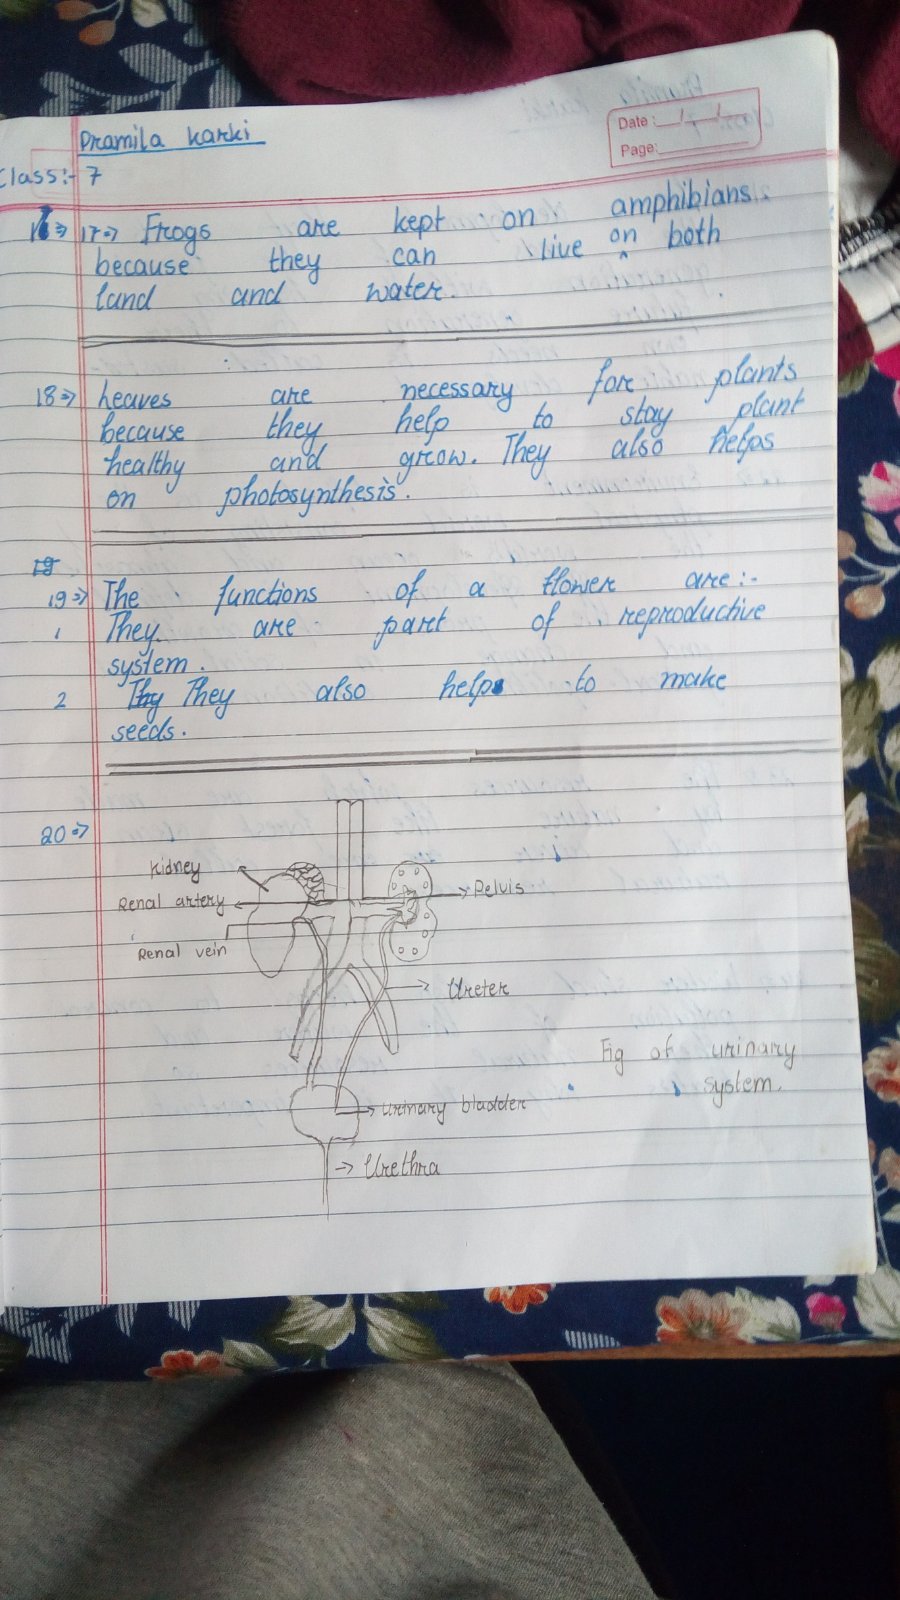 Pramila Karki
Date :
Page:
Class:- 7
17=> Frogs are kept on amphibians.
because they can live on both
land and water.
18=> Leaves are necessary for plants
because they help to stay plant
healthy and grow. They also helps
on photosynthesis.
19
19=> The functions of a flower are:-
1 They are part of reproductive
system.
2 They They also help to make
seeds.
20=>
Kidney
Renal artery
Renal vein
Pelvis
Ureter
Fig of urinary
system.
urinary bladder
Urethra